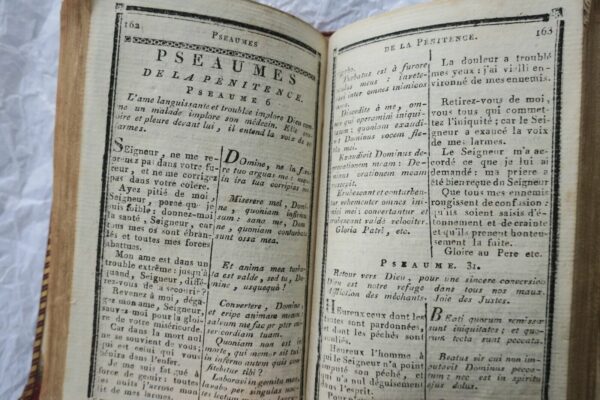 162
PSEAUMES
PSEAUMES
DE LA PÉNITENCE.
PSEAUME 6
L'ame languissante et troublée implore Dieu comme
un malade implore son médecin. Elle
et pleure devant lui, il entend la voix de
larmes.
SEigneur, ne me re-
prenez pas dans votre fu-
reur, et ne me corrigez
pas dans votre colère.
Ayez pitié de moi,
Seigneur, parce que
suis foible: donnez-moi
la santé, Seigneur, car
tous mes os sont ébran-
lés et toutes mes forces
abattues.
Mon ame est dans un
trouble extrême: jusqu'à
quand, Seigneur, diffé-
rez-vous de me secourir?
Revenez à moi, déga-
gez mon ame, Seigneur,
sauvez-moi pour la gloi-
re de votre miséricorde.
Car dans la mort nul
ne se souvient de vous;
qui est celui qui vous
bénira dans l'enfer.
Je me suis fatigué à
force de gémir: toutes
les nuits j'arrose mon
lit de mes larmes.
DOmine, ne in furo-
re tuo arguas me: neque
in ira tua corripias me.
Miserere mei, Domi-
ne, quoniam infirmus
sum; sana me, Domi-
ne, quoniam conturbata
sunt ossa mea.
Et anima mea turba-
ta est valde, sed tu, Do-
mine, usquequò?
Convertere, Domine,
et eripe animam meam:
salvum me fac propter mi-
sericordiam tuam.
Quoniam non est in
morte, qui memor sit tui:
in inferno autem quis con-
fitebitur tibi?
Laboravi in gemitu meo,
lavabo per singulas noc-
163
DE LA PÉNITENCE.
Turbatus est à furore
oculus meus: invete-
ravi inter omnes inimicos
Discedite à me, om-
nes qui operamini iniqui-
tatem; quoniam exaudi-
vit Dominus vocem fle-
tûs mei.
Exaudivit Dominus de-
precationem meam: Do-
minus orationem meam
suscepit.
Erubescant et conturben-
tur vehementer omnes ini-
mici mei: convertantur et
erubescant valdè velociter.
Gloria Patri, etc.
La douleur a troublé
mes yeux; j'ai vieilli en-
vironné de mes ennemis.
Retirez-vous de moi,
vous tous qui commet-
tez l'iniquité; car le Sei-
gneur a exaucé la voix
de mes larmes.
Le Seigneur m'a ac-
cordé ce que je lui ai
demandé; ma priere a
été bien reçue du Seigneur
Que tous mes ennemis
rougissent de confusion:
qu'ils soient saisis d'é-
tonnement et de crainte
et qu'ils prennent honteu-
sement la fuite.
Gloire au Pere etc.
PSEAUME. 31.
Retour vers Dieu, pour une sincere conversion
Dieu est notre refuge dans tous nos maux.
Affliction des méchants. Joie des Justes.
HEureux ceux dont les
fautes sont pardonnées,
et dont les péchés sont
Heureux l'homme à
qui le Seigneur n'a point
imputé son péché, et
qui n'a nul déguisement
dans l'esprit.
BEati quorum remissæ
sunt iniquitates; et quo-
rum tecta sunt peccata.
Beatus vir cui non im-
putavit Dominus pecca-
tum: nec est in spiritu
ejus dolus.